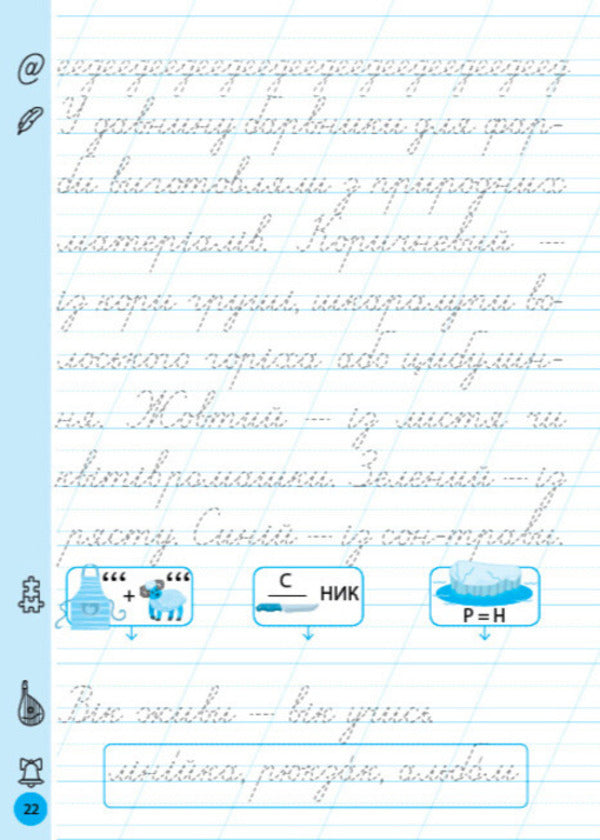 У давнину барвники для фар-
би виготовляли з природних
матеріалів. Коричневий —
із кори груші, шкаралупи во-
лоського горіха або цибулин-
ня. Жовтий — із листя чи
квітів ромашки. Зелений — із
рясту. Синій — із сон-трави.
‘‘‘ + ‘‘‘
С
НИК
Р = Н
Вік живи — вік учись.
лінійка, рюкзак, альбом
22